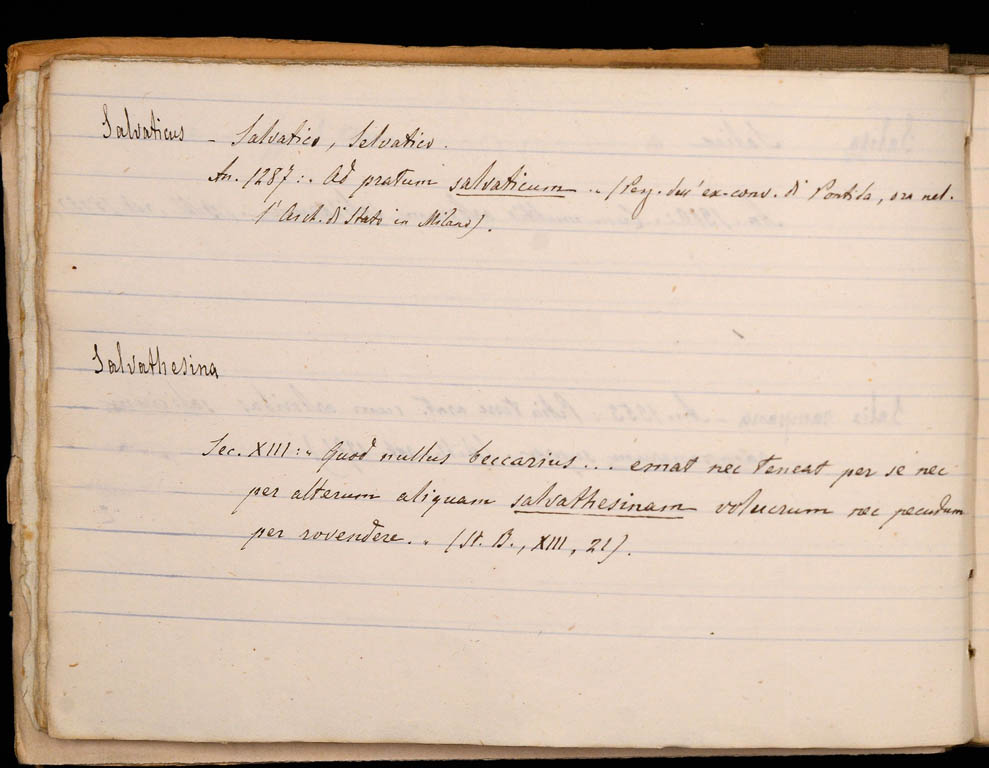 Salvaticus - Salvatico, Selvatico.
An. 1287: „ Ad pratum salvaticum „ (Perg. dell'ex-conv. di Pontida, ora nel-
l'Arch. di Stato in Milano).
Salvathesina
Sec. XIII: „ Quod nullus beccarius... emat nec teneat per se nec
per alterum aliquam salvathesinam volucrum nec pecudum
per rovendere. „ (St. B., XIII, 21).